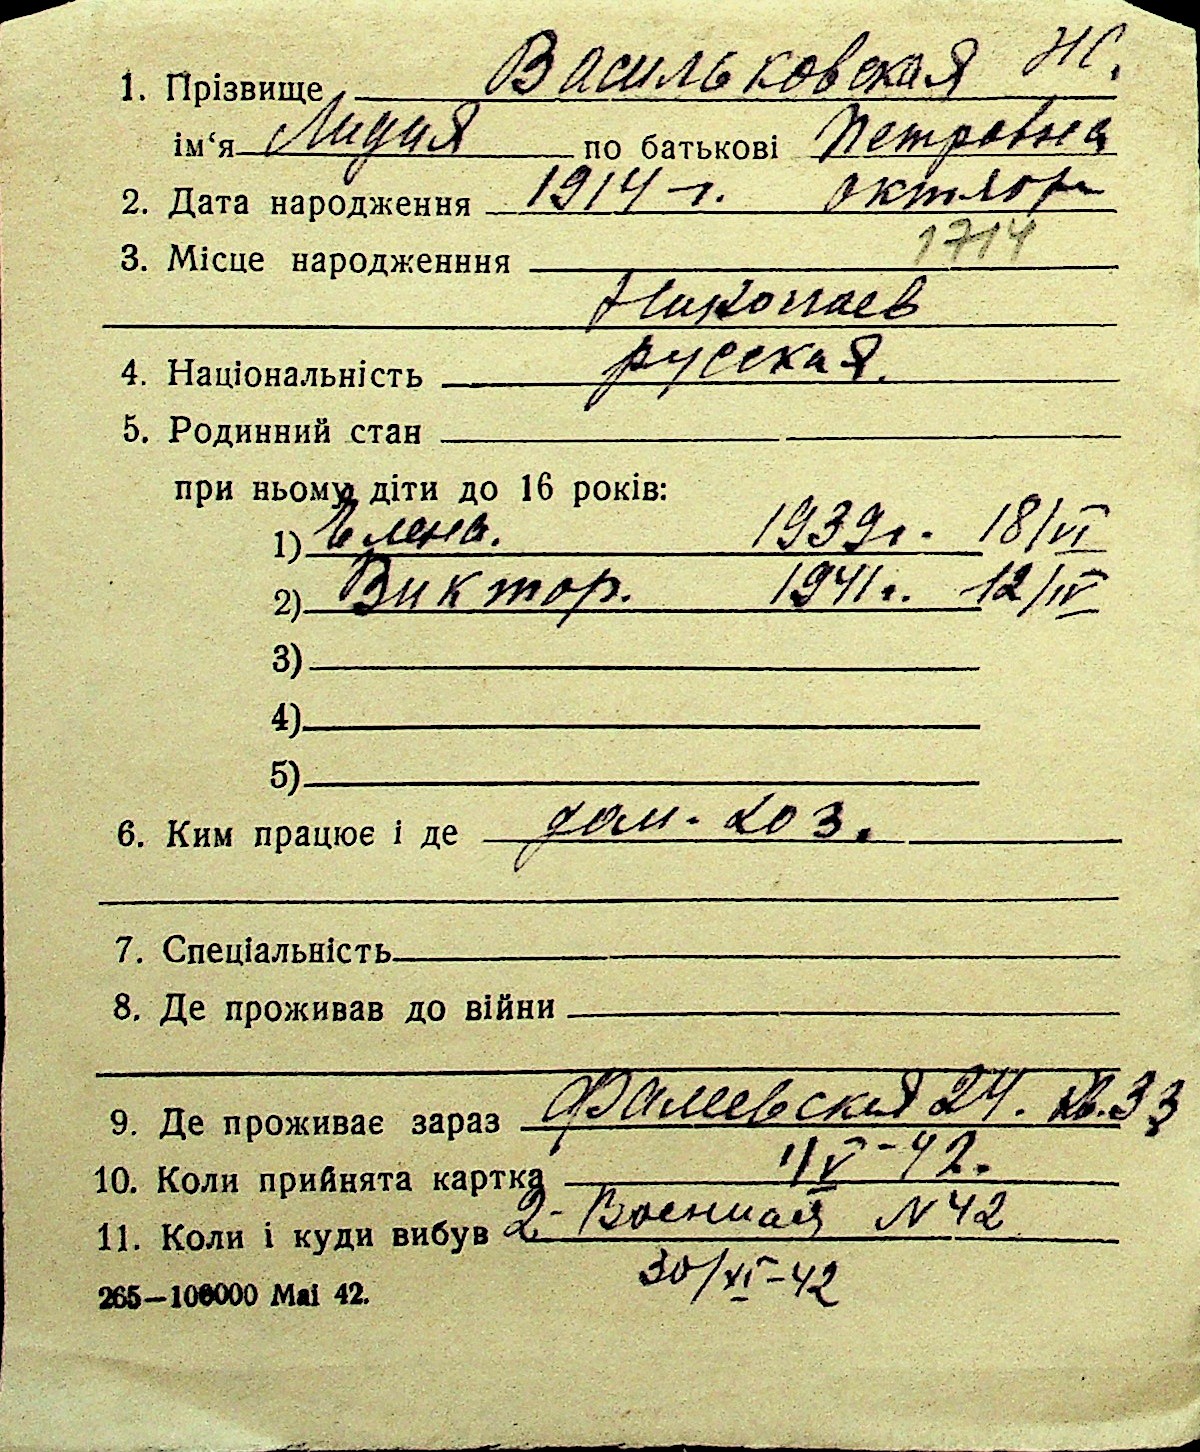 1. Прізвище Васильковская Ж.
ім‘я Лидия по батькові Петровна
2. Дата народження 1914 г. октябрь
3. Місце народженння 1714
Николаев
4. Національність русская.
5. Родинний стан
при ньому діти до 16 років:
1) Елена. 1939г. 18/VI
2) Виктор. 1941г. 12/IV
3)
4)
5)
6. Ким працює і де дом-хоз.
7. Спеціальність
8. Де проживав до війни
9. Де проживає зараз Фалеевская 24. кв.33
10. Коли прийнята картка V-42.
11. Коли і куди вибув 2-Военная N 42
30/XI-42
265—100000 Mai 42.